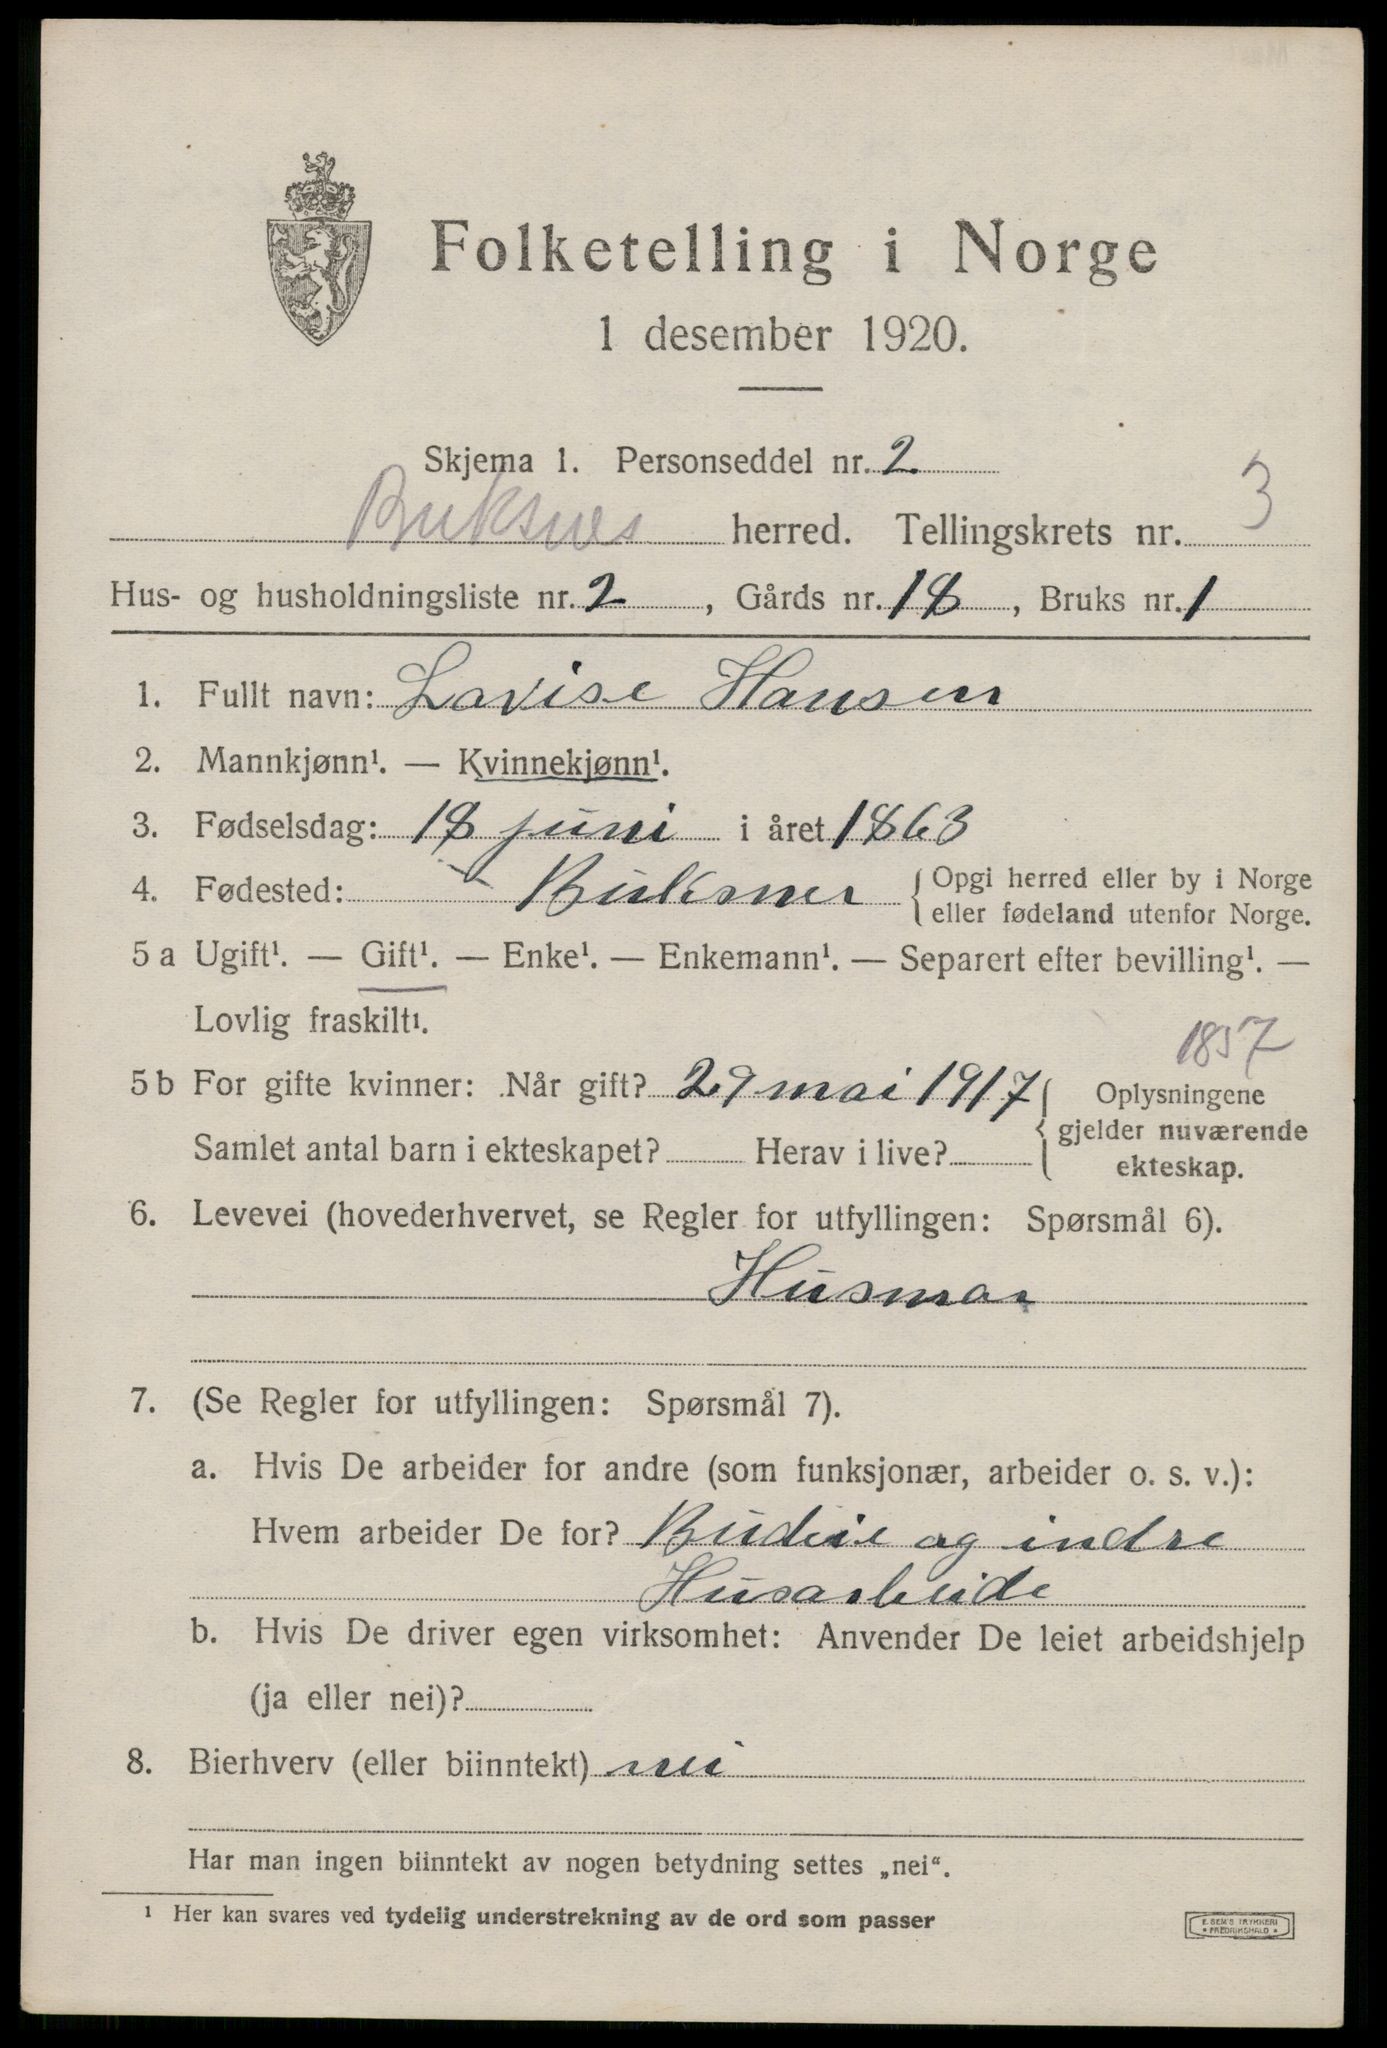 Folketelling i Norge
1 desember 1920.
Skjema 1. Personseddel nr. 2
Buksnes herred. Tellingskrets nr. 3
Hus- og husholdningsliste nr. 2, Gårds nr. 18, Bruks nr. 1
1. Fullt navn: Lovise Hansen
2. Mannkjønn¹. — Kvinnekjønn¹.
3. Fødselsdag: 18 juni i året 1863
4. Fødested: Buksnes {Opgi herred eller by i Norge
eller fødeland utenfor Norge.
5 a Ugift¹. — Gift¹. — Enke¹. — Enkemann¹. — Separert efter bevilling¹. —
Lovlig fraskilt¹.
1857
5 b For gifte kvinner: Når gift? 29 mai 1917
Samlet antal barn i ekteskapet? Herav i live?
{Oplysningene
gjelder nuværende
ekteskap.
6. Levevei (hovederhvervet, se Regler for utfyllingen: Spørsmål 6).
Husmor
7. (Se Regler for utfyllingen: Spørsmål 7).
a. Hvis De arbeider for andre (som funksjonær, arbeider o. s. v.):
Hvem arbeider De for? Budeie og indre
Husarbeide
b. Hvis De driver egen virksomhet: Anvender De leiet arbeidshjelp
(ja eller nei)?
8. Bierhverv (eller biinntekt) nei
Har man ingen biinntekt av nogen betydning settes „nei“.
¹ Her kan svares ved tydelig understrekning av de ord som passer
E. SEM'S TRYKKERI
* FREDRIKSHALD *